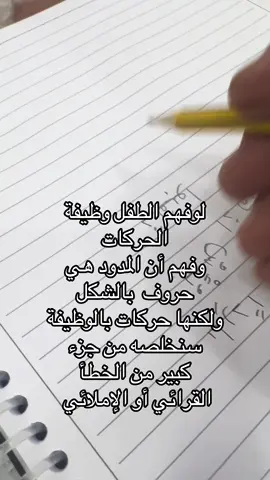 لو فهم الطفل وظيفة
الحركات
وفهم أن المدود هي
حروف بالشكل
ولكنها حركات بالوظيفة
سنخلصه من جزء
كبير من الخطأ
القرائي أو الإملائي